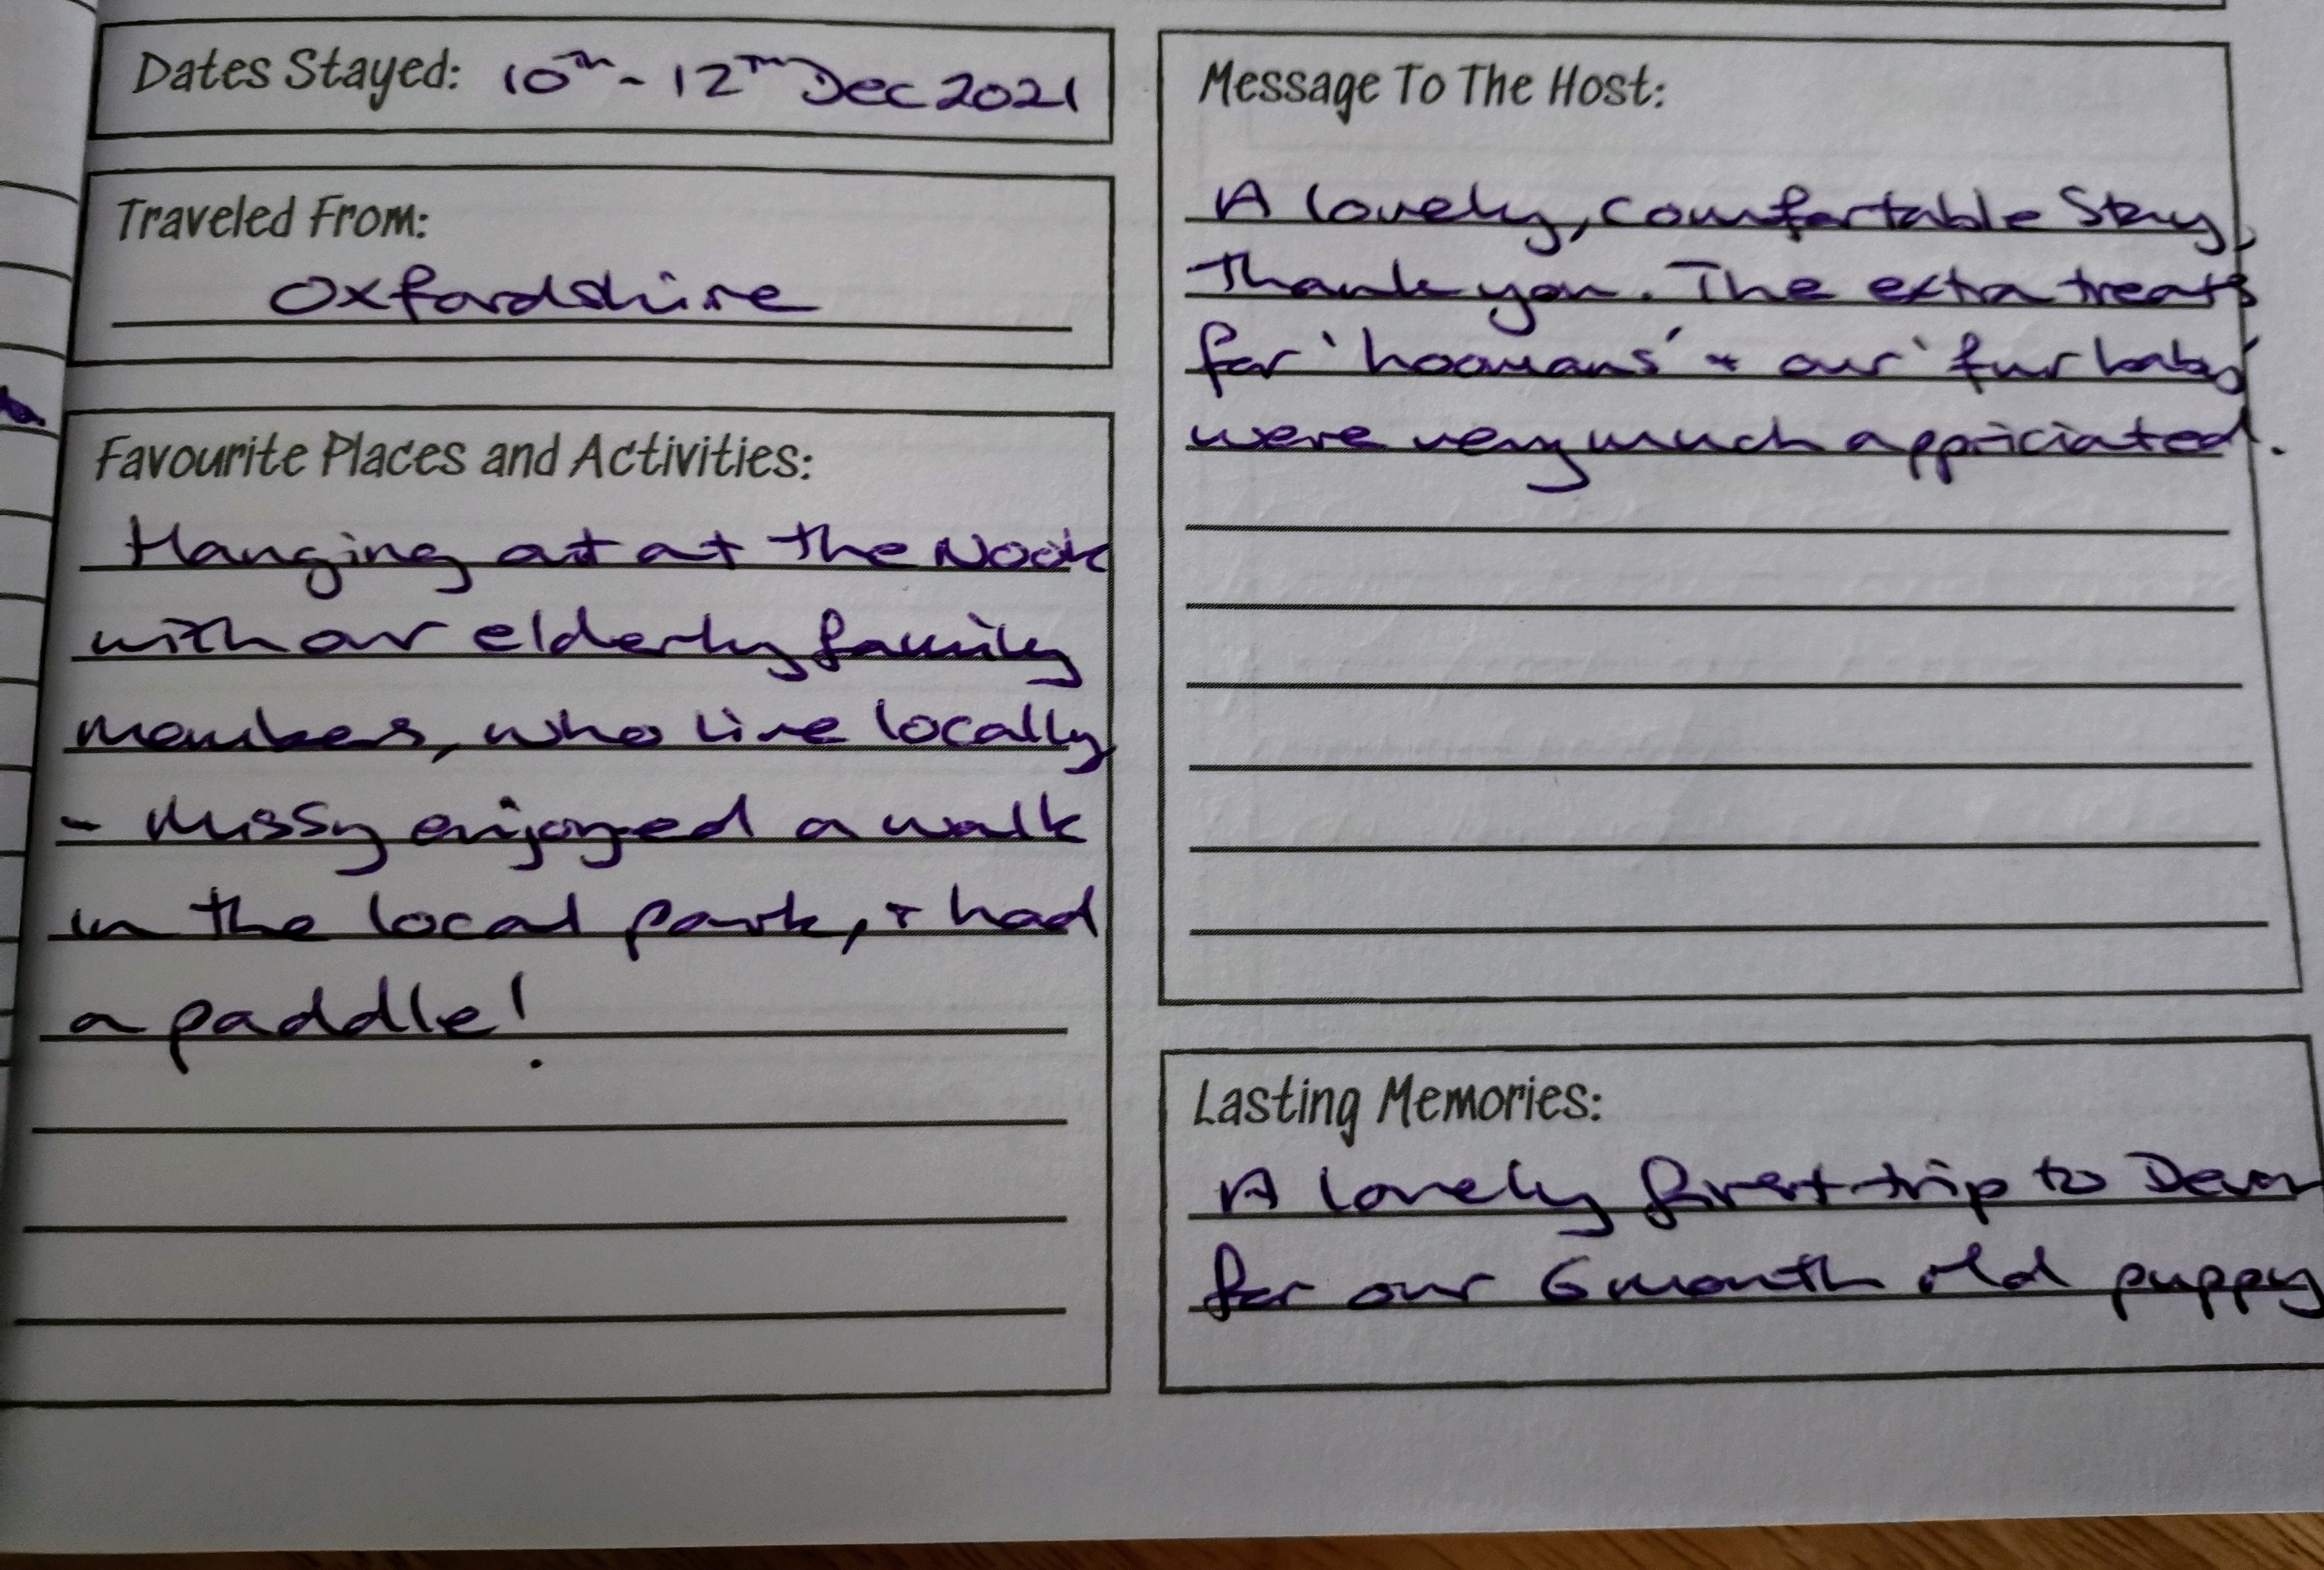 Dates Stayed: 10th - 12th Dec 2021
Traveled From:
Oxfordshire
Favourite Places and Activities:
Hanging out at the Nook
with our elderly family
members, who live locally
- Missy enjoyed a walk
in the local park, + had
a paddle!
Message To The Host:
A lovely, comfortable stay,
thank you. The extra treats
for 'hoomans' + our 'fur baby'
were very much appriciated.
Lasting Memories:
A lovely first trip to Devon
for our 6 month old puppy